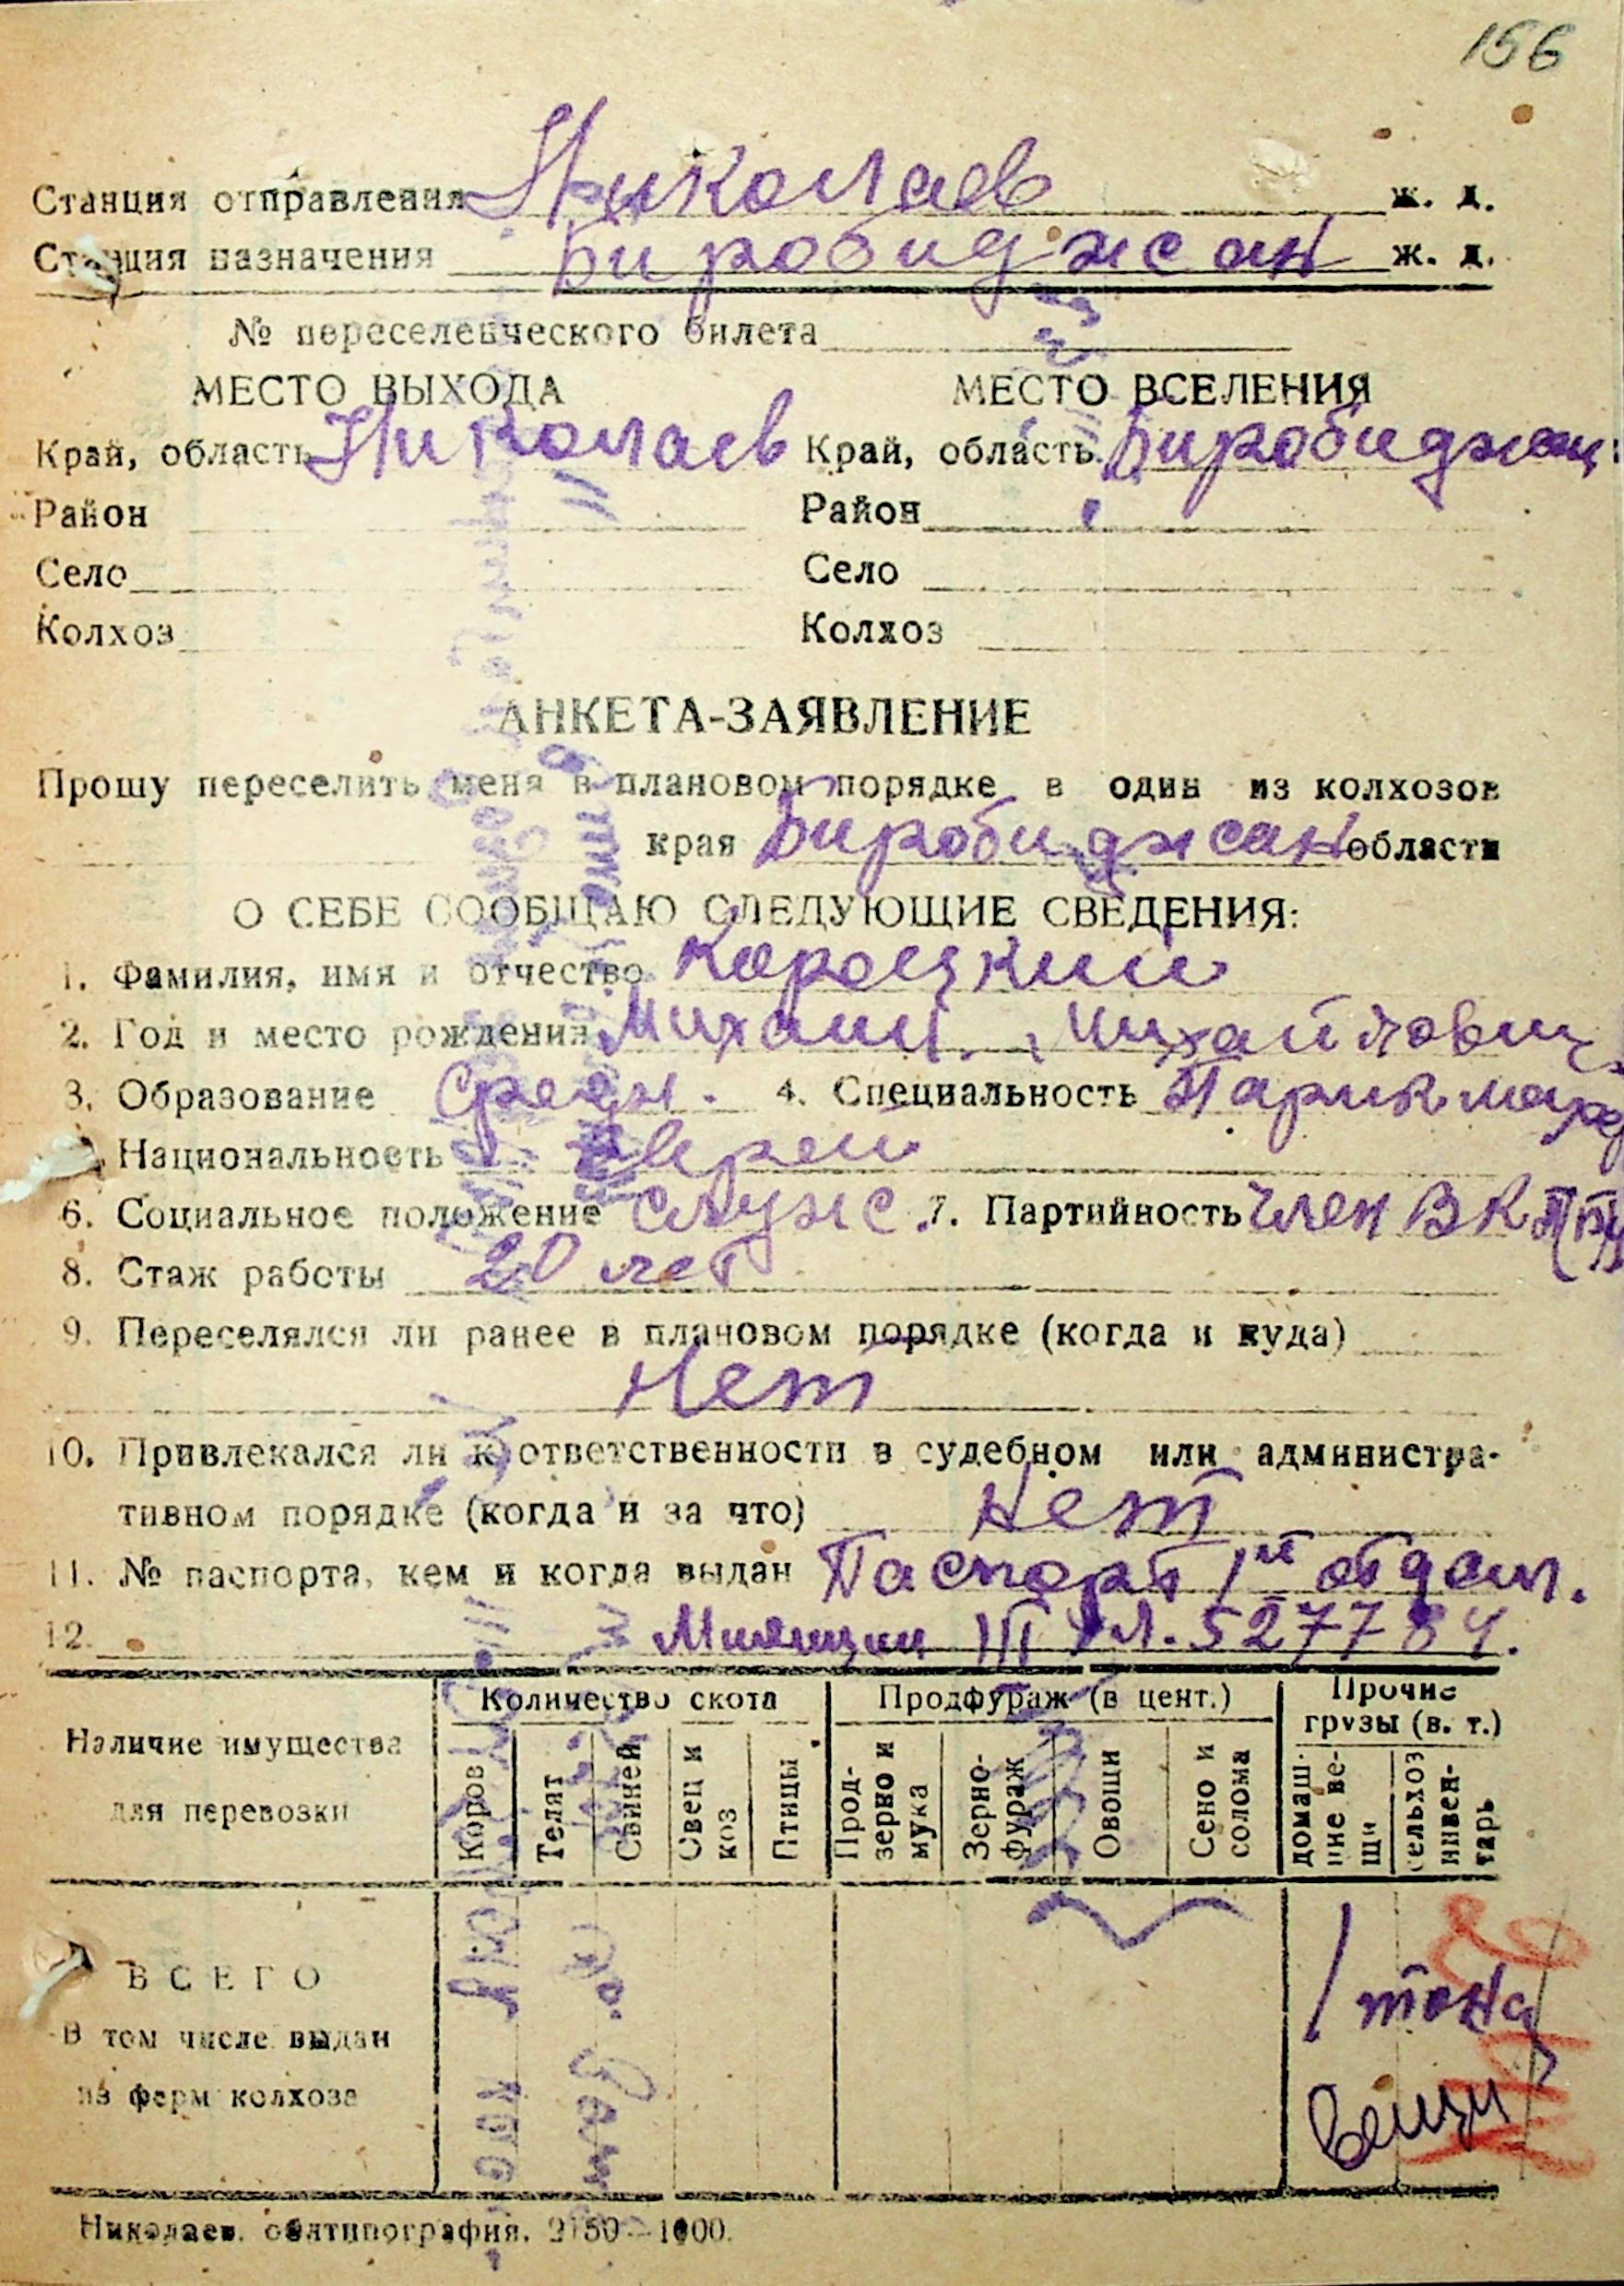 156
Станция отправления Николаев ж. д.
Станция назначения Биробиджан ж. д.
№ переселенческого билета
МЕСТО ВЫХОДА МЕСТО ВСЕЛЕНИЯ
Край, область Николаев Край, область Биробиджан
Район Район
Село Село
Колхоз Колхоз
АНКЕТА-ЗАЯВЛЕНИЕ
Прошу переселить меня в плановом порядке в один из колхозов
края Биробиджан области
О СЕБЕ СООБЩАЮ СЛЕДУЮЩИЕ СВЕДЕНИЯ:
1. Фамилия, имя и отчество Корецкий
2. Год и место рождения Михаил Михайлович
3. Образование Средн. 4. Специальность Парикмахер
Национальность Еврей
6. Социальное положение служ. 7. Партийность член ВКП(б)
8. Стаж работы 20 лет
9. Переселялся ли ранее в плановом порядке (когда и куда)
Нет
10. Привлекался ли к ответственности в судебном или администра-
тивном порядке (когда и за что) Нет
11. № паспорта, кем и когда выдан Паспорт 1м отдел.
12. Милиции III 527784.
Наличие имущества для перевозки
Количество скота Продфураж (в цент.) Прочие грузы (в. т.)
Коров Телят Свиней Овец и коз Птицы Прод-зерно и мука Зерно-фураж Овощи Сено и солома домаш-ние ве-щи сельхоз инвен-тарь
ВСЕГО
В том числе выдан
из ферм колхоза
1 тона
вещи
Николаев. облтипография. 2150—1000.